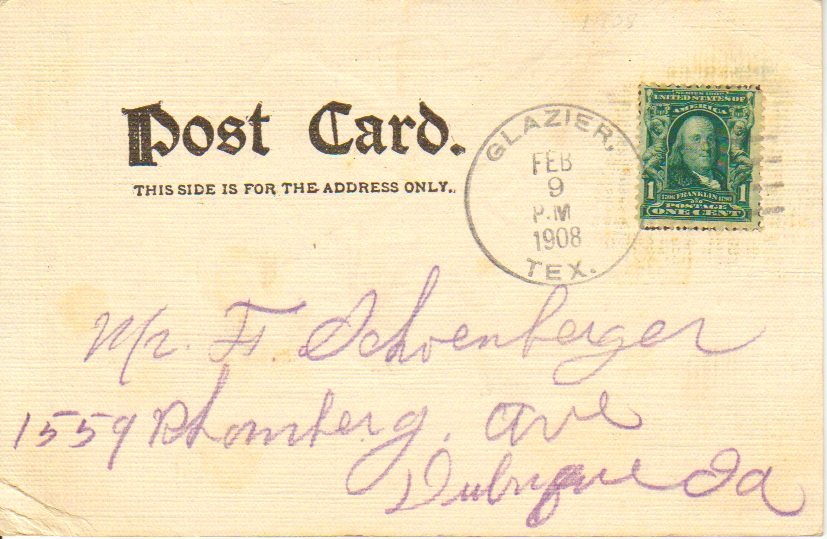 1908
Post Card.
THIS SIDE IS FOR THE ADDRESS ONLY.
GLAZIER,
FEB
9
P.M
1908
TEX.
SERIES 1902
UNITED STATES OF
AMERICA
1 1
1706 FRANKLIN 1790
POSTAGE
ONE CENT
Mr. F. Schoenberger
1559 Rhomberg. Ave
Dubuque Ia